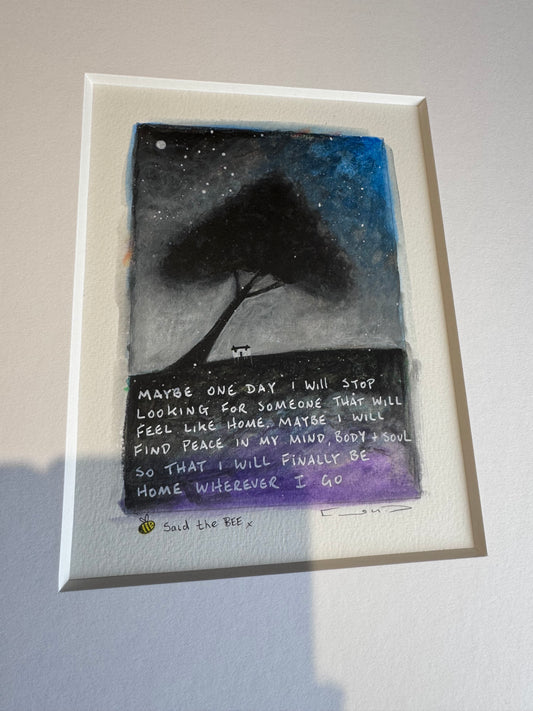 MAYBE ONE DAY I WILL STOP
LOOKING FOR SOMEONE THAT WILL
FEEL LIKE HOME. MAYBE I WILL
FIND PEACE IN MY MIND, BODY + SOUL
SO THAT I WILL FINALLY BE
HOME WHEREVER I GO
Said the BEE x